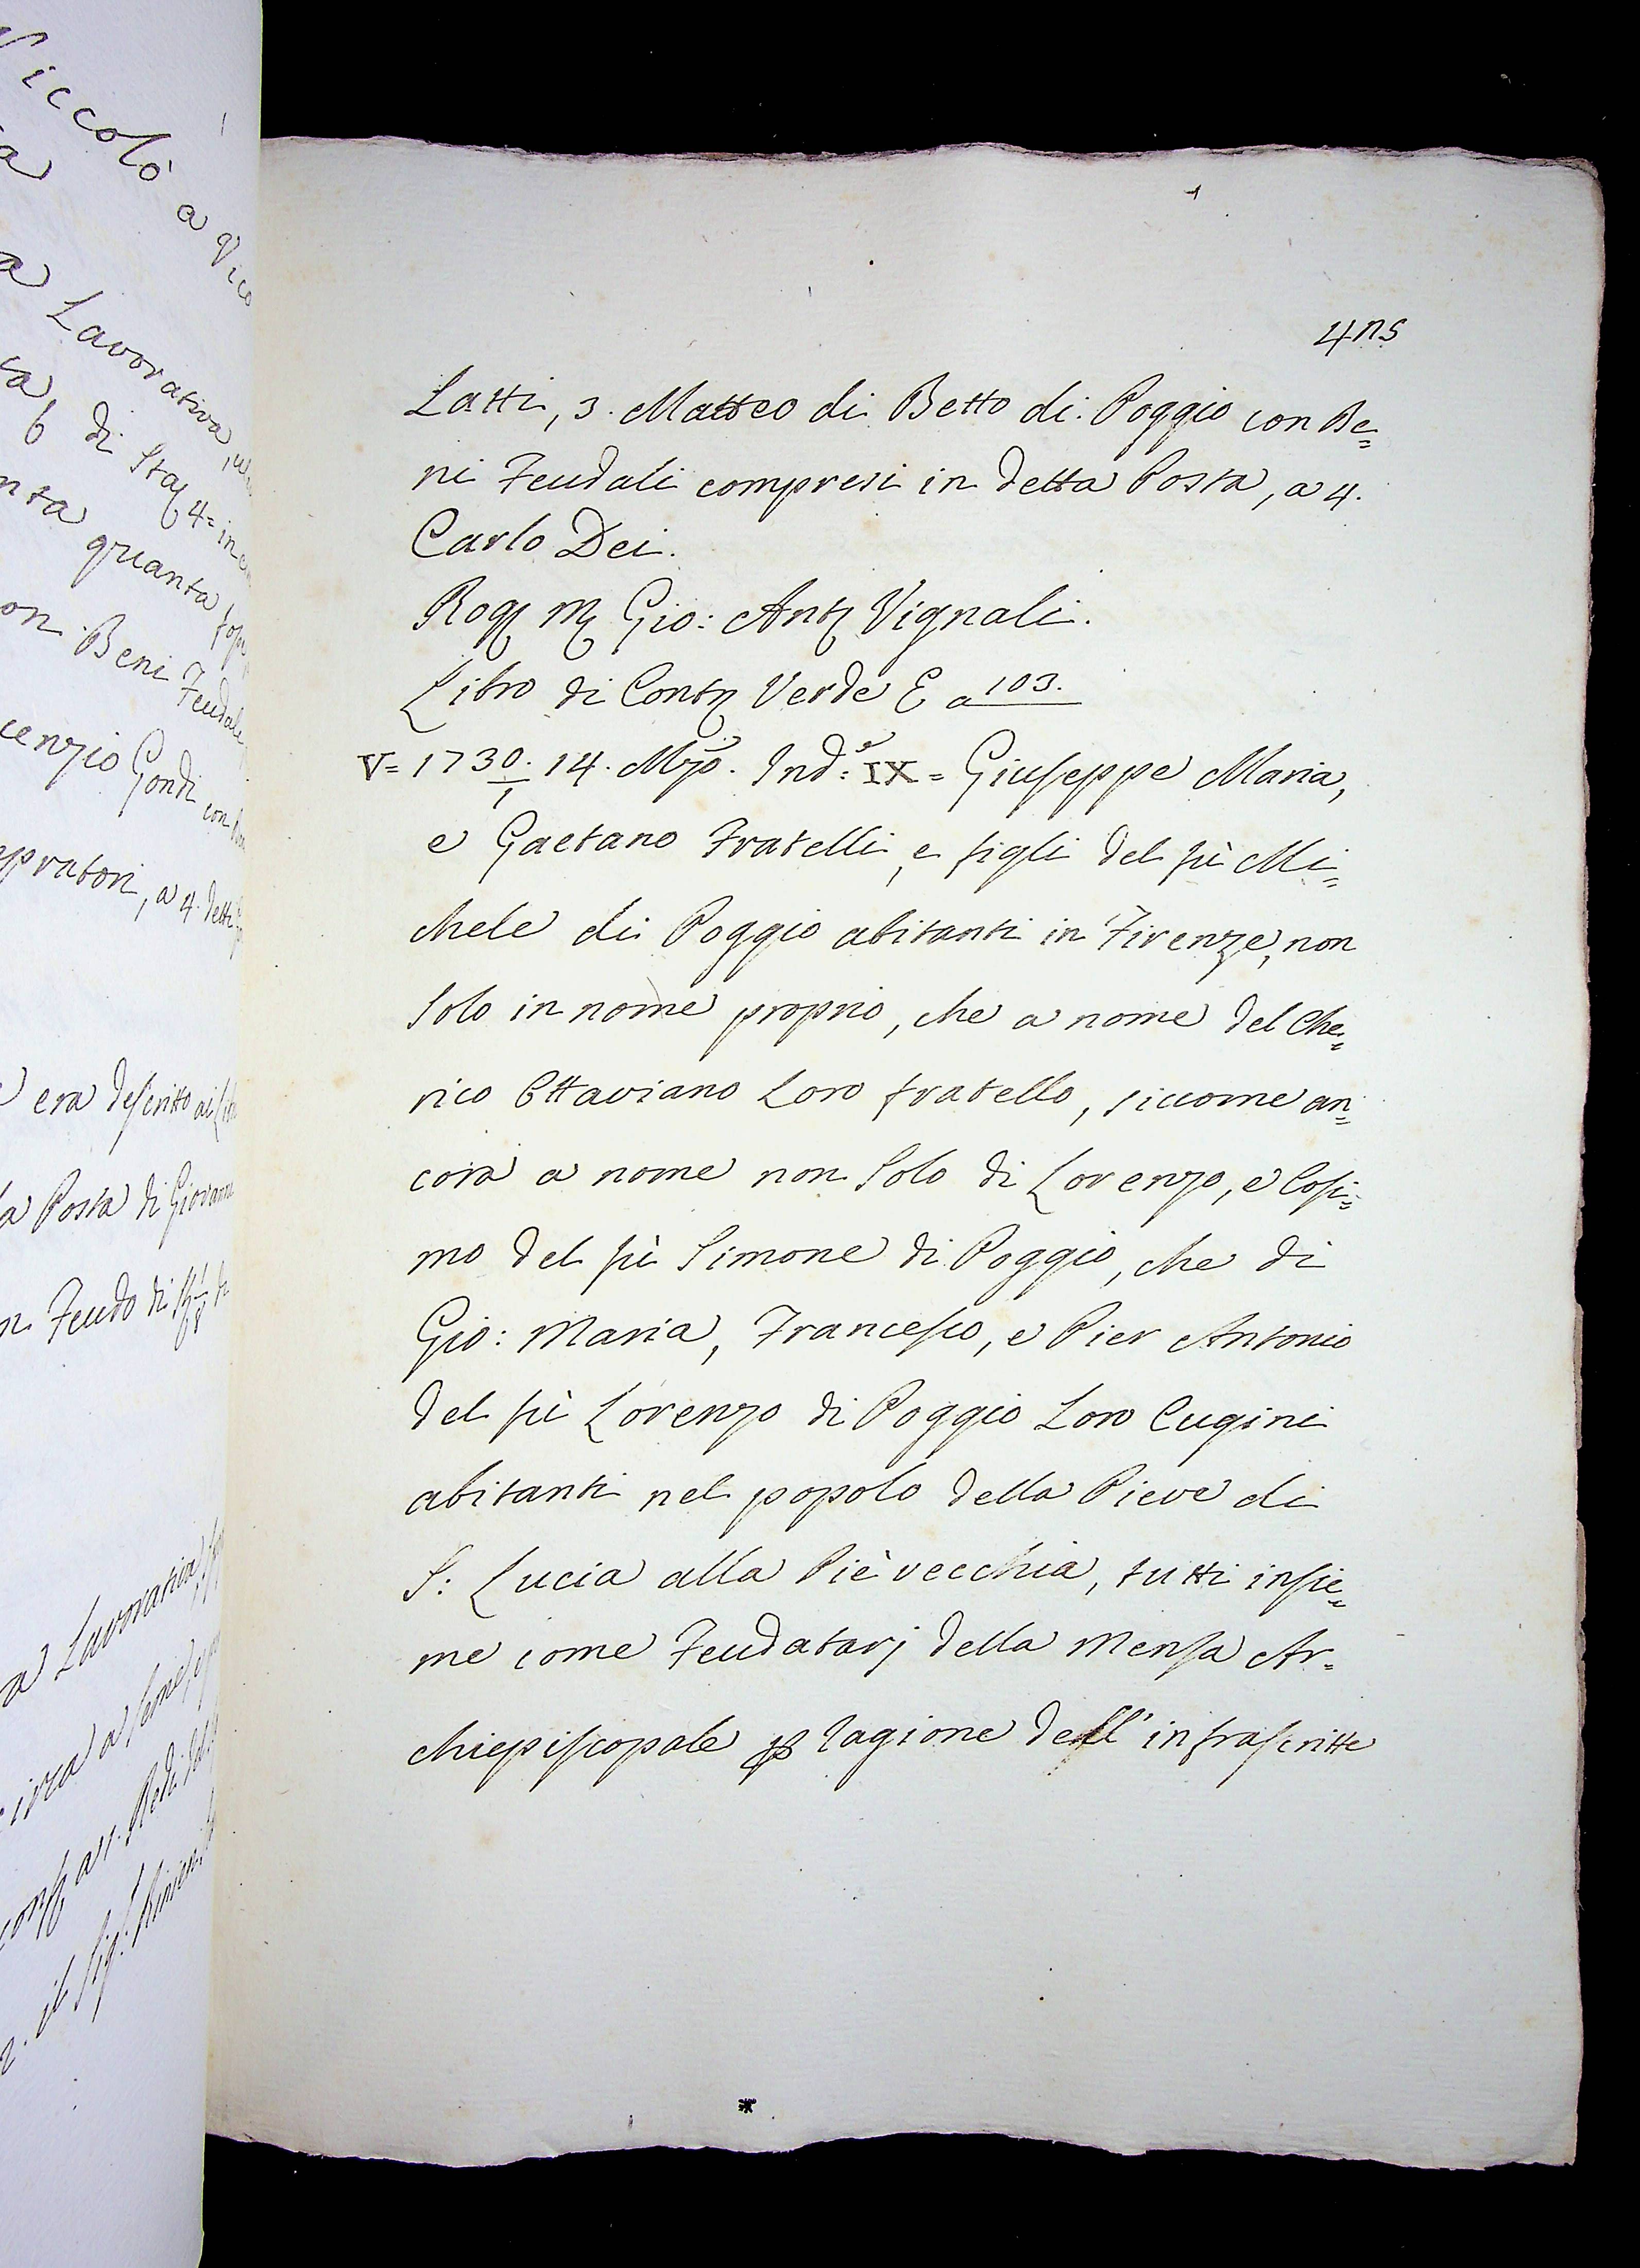 iccolò a Vico
a
a Lavorativa
ta
6 di Sta 4= in
nta quanta
on Beni Feudale
cenzio Gondi con
pratori, a 4. detti
era descritto
a Posta di Giovann
n Feudo di
a Lavorativa
circa a seme
a 1. Redi del
2. il Sig:
4ns
Latti, 3. Matteo di Betto di Poggio con Be=
ni Feudali compresi in detta Posta, a 4.
Carlo Dei.
Rog M Gio: Ant Vignali.
Libro di Contr Verde E a 103.
V= 1730/1. 14. Mzo. Ind: IX= Giuseppe Maria,
e Gaetano Fratelli, e figli del fù Mi=
chele di Poggio abitanti in Firenze, non
solo in nome proprio, che a nome del Che=
rico Ottaviano Loro fratello, siccome an=
cora a nome non solo di Lorenzo, e Cosi=
mo del fù Simone di Poggio, che di
Gio: Maria, Francesco, e Pier Antonio
del fù Lorenzo di Poggio Loro Cugini
abitanti nel popolo della Pieve di
S: Lucia alla Piè vecchia, tutti insie=
me come Feudatarj della Mensa Ar=
chiepiscopale p ragione dell'infrascritte